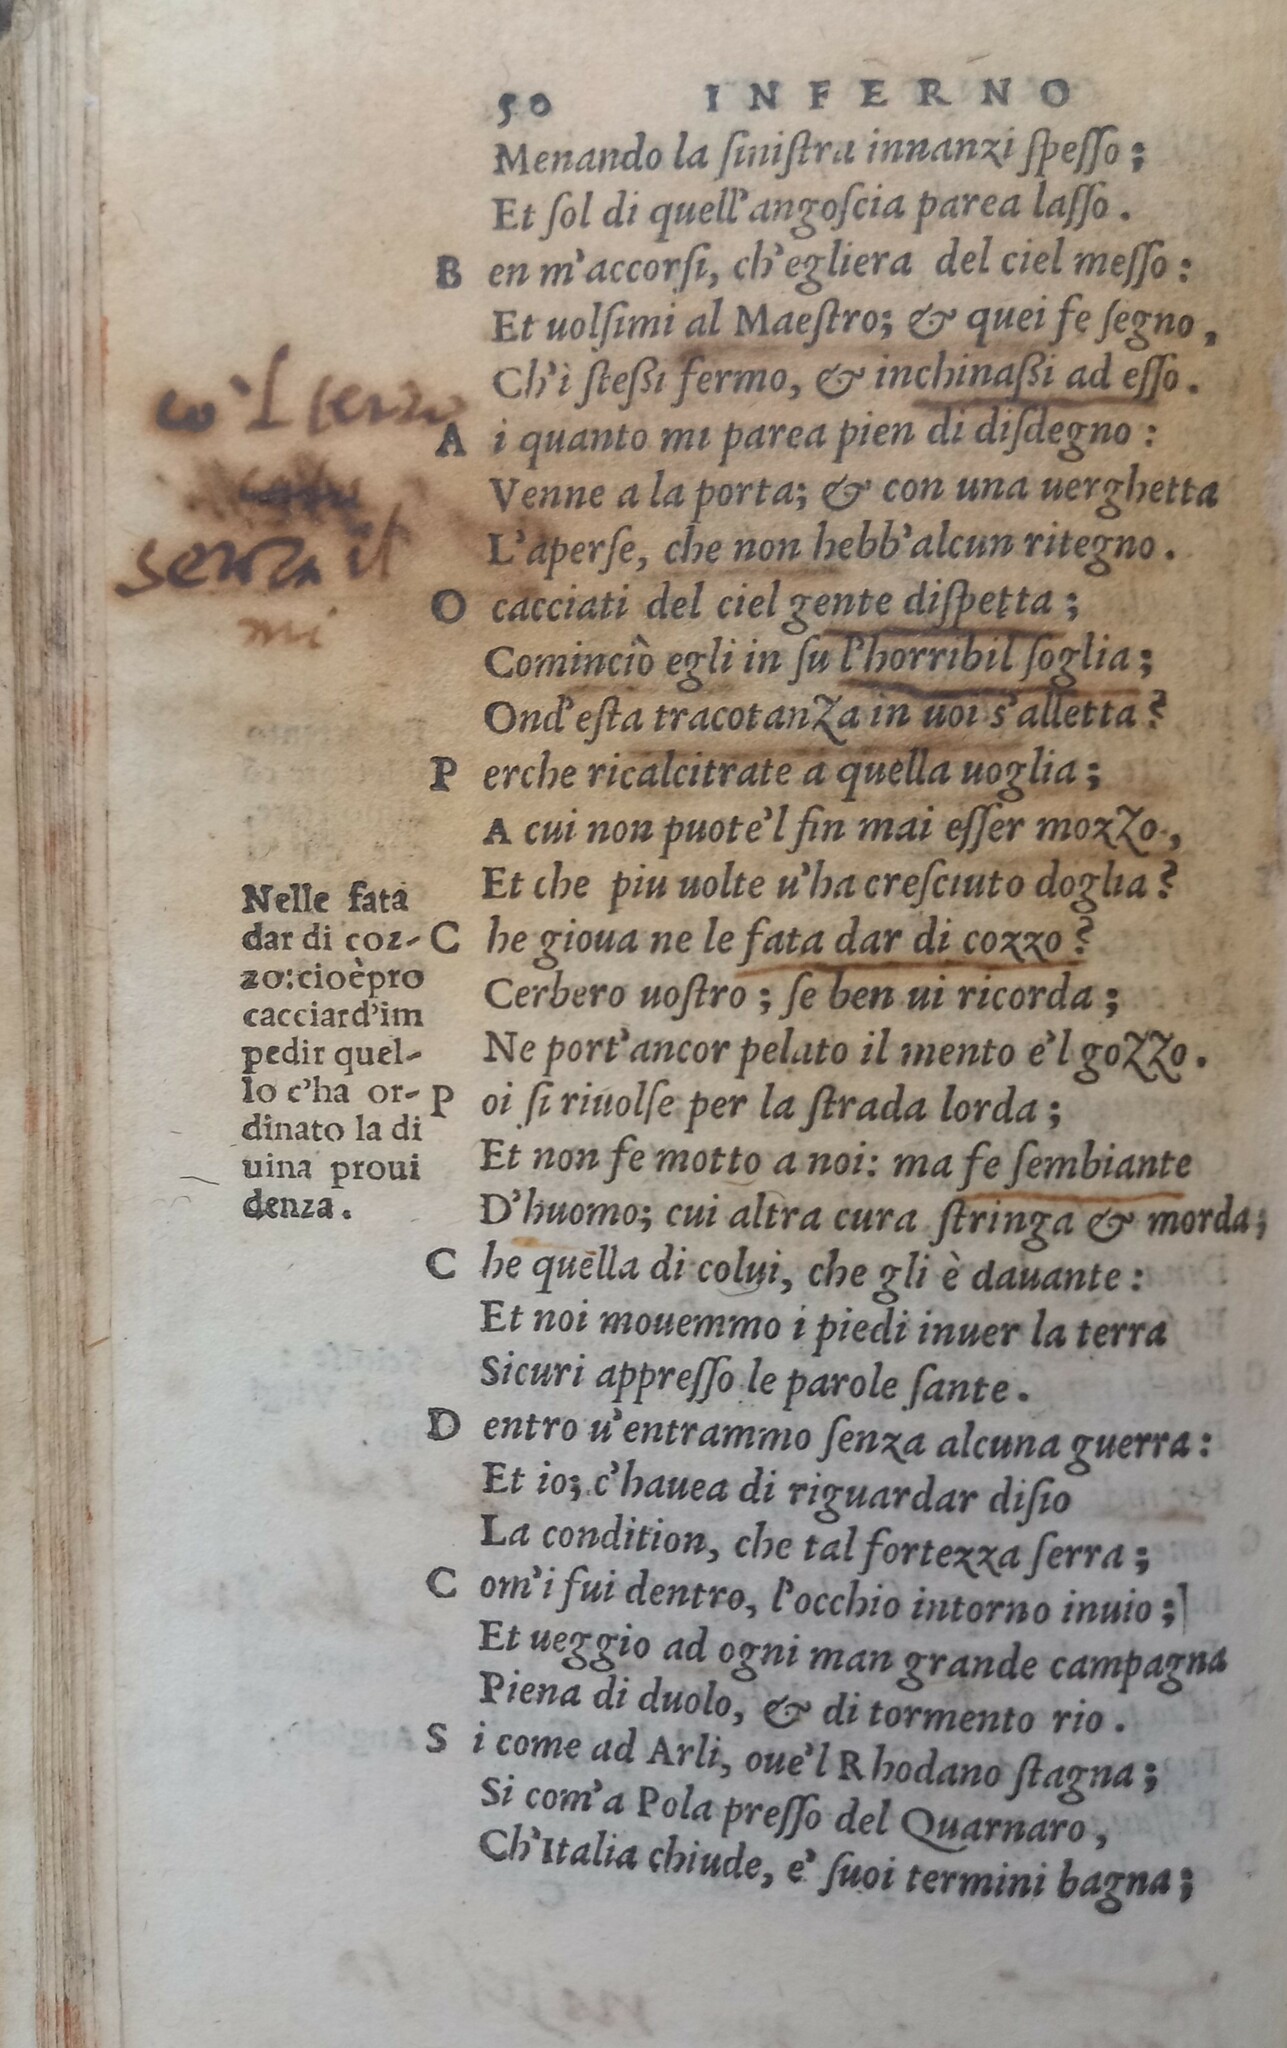 50 INFERNO
Menando la ſiniſtra innanzi ſpeſſo;
Et ſol di quell'angoſcia parea laſſo.
B en m'accorſi, ch'egliera del ciel meſſo:
Et uolſimi al Maeſtro; & quei fe ſegno,
Ch'i ſteßi fermo, & inchinaßi ad eſſo.
A i quanto mi parea pien di diſdegno:
Venne a la porta; & con una uerghetta
L'aperſe, che non hebb'alcun ritegno.
O cacciati del ciel gente diſpetta;
Cominciò egli in ſu l'horribil ſoglia;
Ond'eſta tracotanza in uoi s'alletta?
P erche ricalcitrate a quella uoglia;
A cui non puote'l fin mai eſſer mozzo,
Et che piu uolte u'ha creſciuto doglia?
C he gioua ne le fata dar di cozzo?
Cerbero uoſtro; ſe ben ui ricorda;
Ne port'ancor pelato il mento e'l gozzo.
P oi ſi riuolſe per la ſtrada lorda;
Et non fe motto a noi: ma fe ſembiante
D'huomo; cui altra cura ſtringa & morda;
C he quella di colui, che gli è dauante:
Et noi mouemmo i piedi inuer la terra
Sicuri appreſſo le parole ſante.
D entro u'entrammo ſenza alcuna guerra:
Et io; c'hauea di riguardar diſio
La condition, che tal fortezza ſerra;
C om'i fui dentro, l'occhio intorno inuio;
Et ueggio ad ogni man grande campagna
Piena di duolo, & di tormento rio.
S i come ad Arli, oue'l Rhodano ſtagna;
Si com'a Pola preſſo del Quarnaro,
Ch'Italia chiude, e' ſuoi termini bagna;
senza il
mi
Nelle fata
dar di coz-
zo:cioèpro
cacciard'im
pedir quel-
lo c'ha or-
dinato la di
uina proui
denza.